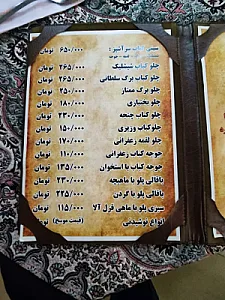 سینی کباب سرآشپز : ۶۵۰/۰۰۰ تومان
چلو کباب شیشلیک ۲۶۵/۰۰۰ تومان
چلو کباب برگ سلطانی ۲۶۵/۰۰۰ تومان
چلو برگ ممتاز ۲۵۰/۰۰۰ تومان
چلو بختیاری ۱۸۰/۰۰۰ تومان
چلو کباب چنجه ۲۳۰/۰۰۰ تومان
چلو کباب وزیری ۱۵۰/۰۰۰ تومان
چلو لقمه زعفرانی ۱۷۰/۰۰۰ تومان
جوجه کباب زعفرانی ۱۱۰/۰۰۰ تومان
جوجه کباب با استخوان ۱۳۵/۰۰۰ تومان
باقالی پلو با ماهیچه ۲۳۰/۰۰۰ تومان
باقالی پلو با گردن ۲۲۵/۰۰۰ تومان
سبزی پلو با ماهی قزل آلا ۱۱۵/۰۰۰ تومان
انواع نوشیدنی (قیمت مصوب) تومان